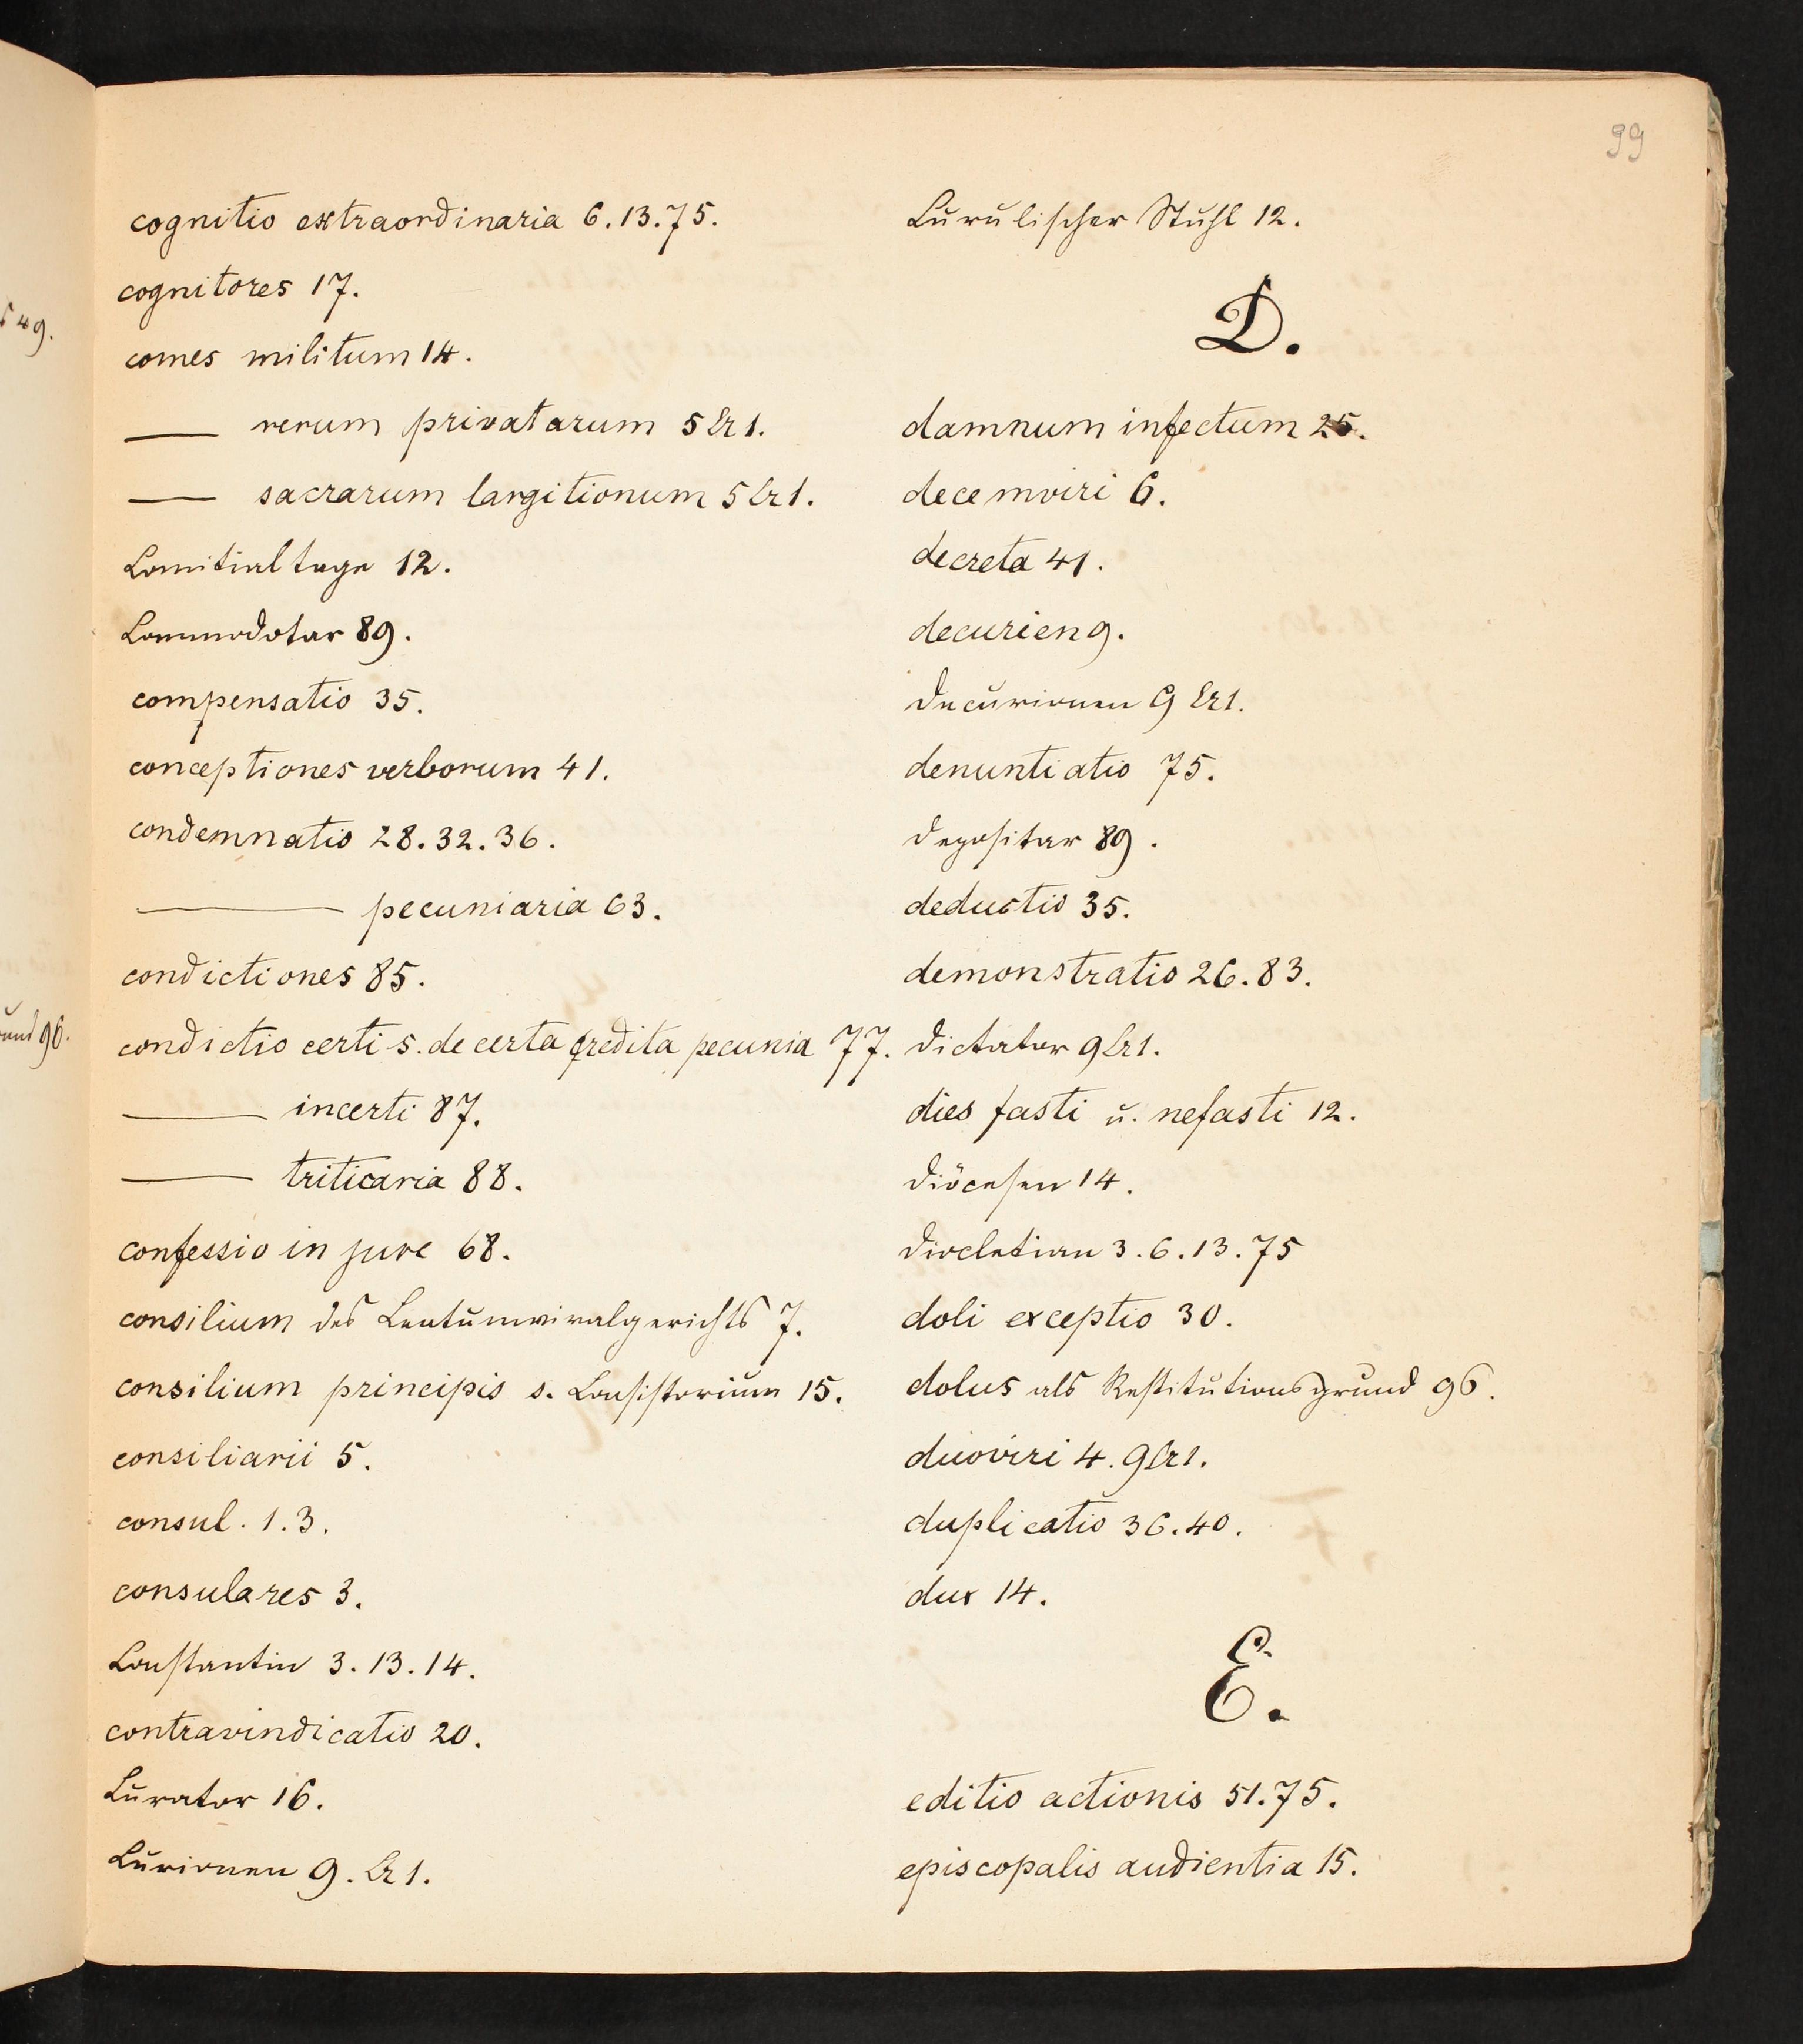 99
cognitio extraordinaria 6.13.75.
cognitores 17.
comes militum 14.
— rerum privatarum 5 Er 1.
— sacrarum largitionum 5 Er 1.
Comitialtage 12.
Commodatar 89.
compensatio 35.
conceptiones verborum 41.
condemnatio 28.32.36.
— pecuniaria 63.
condictiones 85.
condictio certi s. de certa credita pecunia 77.
— incerti 87.
— triticaria 88.
confessio in jure 68.
consilium des Centumviralgerichts 7.
consilium principis s. Consistorium 15.
consiliarii 5.
consul. 1.3.
consulares 3.
Constantin 3.13.14.
contravindicatio 20.
Curator 16.
Curionen 9. Er 1.
Curulischer Stuhl 12.
D.
damnum infectum 25.
decemviri 6.
decreta 41.
decurien 9.
Decurionen 9 Er 1.
denuntiatio 75.
Depositar 89.
deductio 35.
demonstratio 26.83.
Dictator 9 Er 1.
dies fasti u. nefasti 12.
Diöcesen 14.
Diocletian 3.6.13.75
doli exceptio 30.
dolus als Restitutionsgrund 96.
duoviri 4. 9 Er 1.
duplicatio 36.40.
dux 14.
E.
editio actionis 51.75.
episcopalis audientia 15.
49.
96.